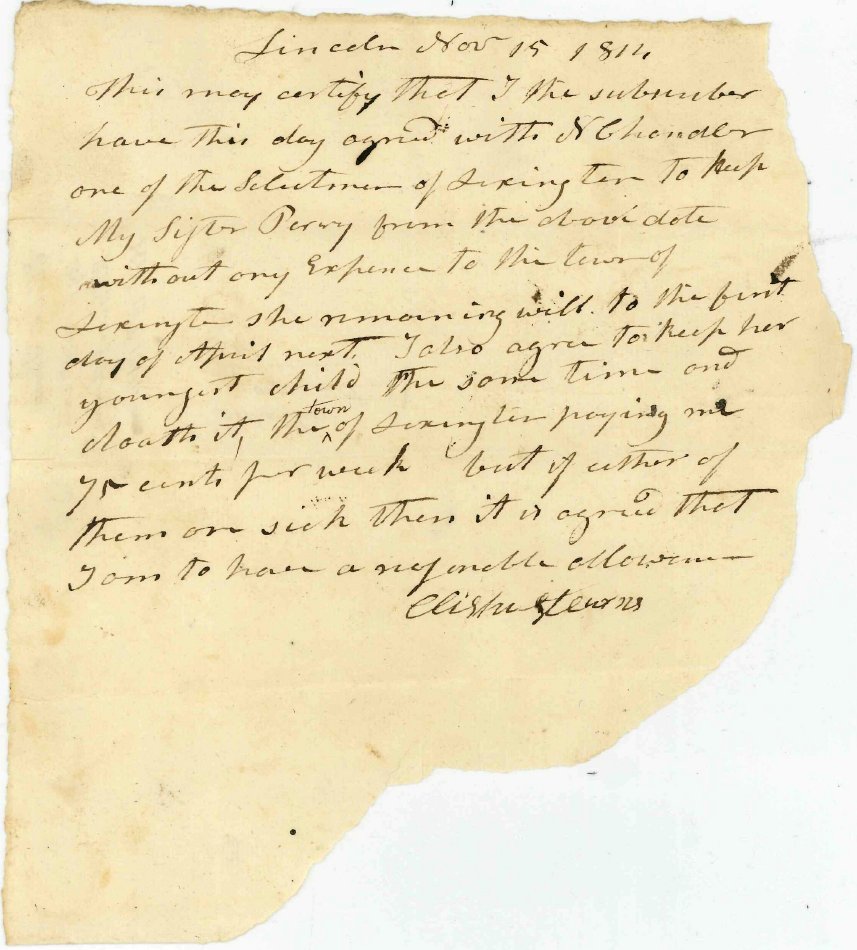 Lincoln Nov 15 1814
This may certify that I the subscriber
have this day agreed with N Chandler
one of the Selectmen of Lexington to keep
My Sister Perry from the above date
without any Expence to the town of
Lexington she remaining well to the first
day of April next. I also agree to keep her
youngest child the same time and
cloath it, the town of Lexington paying me
75 cents per week but if either of
them are sick then it is agreed that
I am to have a resonable allowance
Elisha Stearns